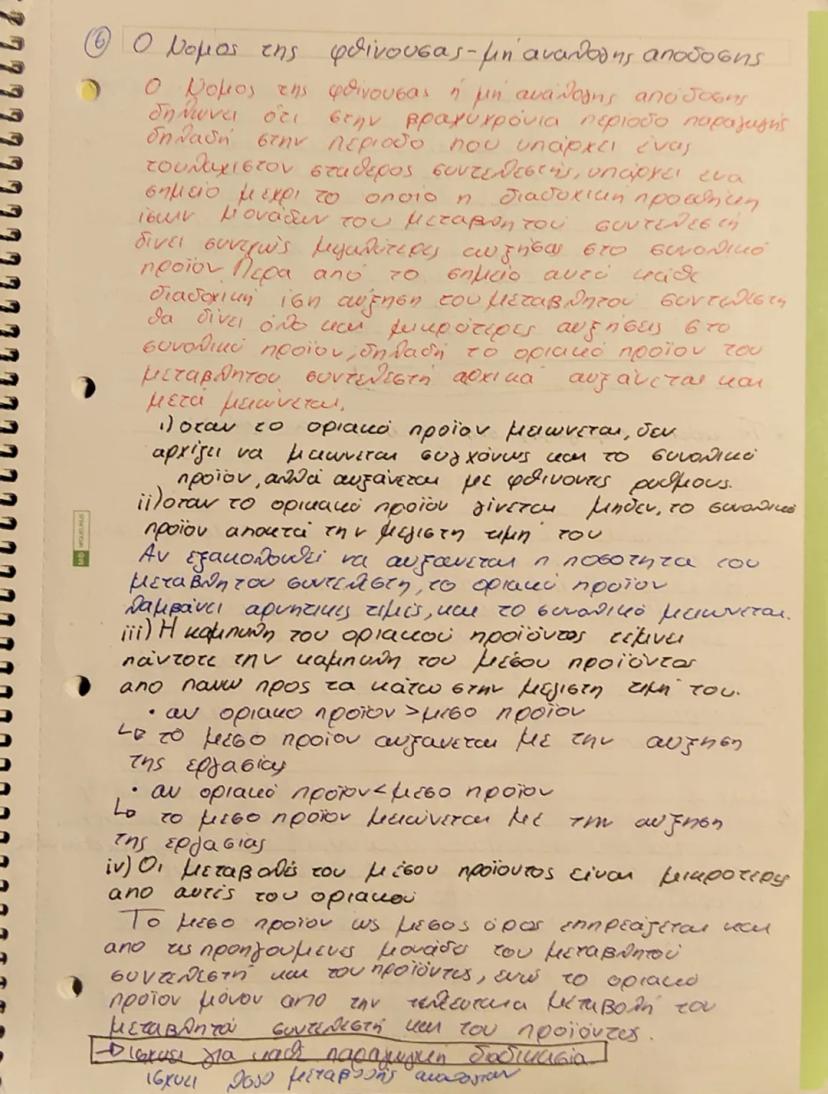 6 Ο Νομος της φθίνουσας - μη ανάλογης αποδοσης
Ο Νομος της φθίνουσας ή μη ανάλογης απόδοσης
δηλωνει ότι στην βραχυχρόνια περίοδο παραγωγής
δηλαδή στην περίοδο που υπάρχει ένας
τουλαχιστον σταθερος συντελεστής, υπάρχει ενα
σημείο μεχρι το οποίο η διαδοχική προσθήκη
ίσων μονάδων του μεταβλητού συντελεστή
δίνει συνεχώς μεγαλύτερες αυξήσεις στο συνολικό
προϊον Πέρα από το σημείο αυτό κάθε
διαδοχική ίση αύξηση του μεταβλητού συντελεστη
θα δίνει όλο και μικρότερες αυξήσεις στο
συνολικό προϊον, δηλαδή το οριακό προϊον του
μεταβλητου συντελεστή αρχικά αυξάνεται και
μετά μειώνεται.
i) οταν το οριακό προϊον μειωνεται, δεν
αρχίζει να μειωνεται συγχόνως και το συνολικό
προϊον, αλλά αυξάνεται με φθίνοντες ρυθμους.
ii) οταν το οριακό προϊον γίνεται μηδεν, το συνολικό
προϊον αποκτά την μέγιστη τιμή του
Αν εξακολουθεί να αυξάνεται η ποσότητα του
μεταβλητου συντελεστη, το οριακό προϊον
λαμβάνει αρνητικες τιμές, και το συνολικό μειωνεται.
iii) Η καμπυλη του οριακού προϊόντος τέμνει
πάντοτε την καμπυλη του μέσου προϊόντος
απο πανω προς τα κάτω στην μέγιστη τιμή του.
• αν οριακο προϊον > μεσο προϊον
↳ το μεσο προϊον αυξανεται με την αυξηση
της εργασίας
• αν οριακό προϊον < μεσο προϊον
↳ το μεσο προϊον μειώνεται με την αυξηση
της εργασιας
iv) Οι μεταβολές του μέσου προϊοντος είναι μικροτερες
απο αυτές του οριακού
Το μεσο προϊον ως μεσος όρος επηρεάζεται και
απο τις προηγουμενες μονάδες του μεταβλητού
συντελεστή και του προϊόντος, ενώ το οριακό
προϊον μόνον απο την τελευταια μεταβολή του
μεταβλητά συντελεστή και του προϊόντος.
→ ισχυει για κάθε παραγωγική διαδικασία
ισχυει λογο μεταβλητής